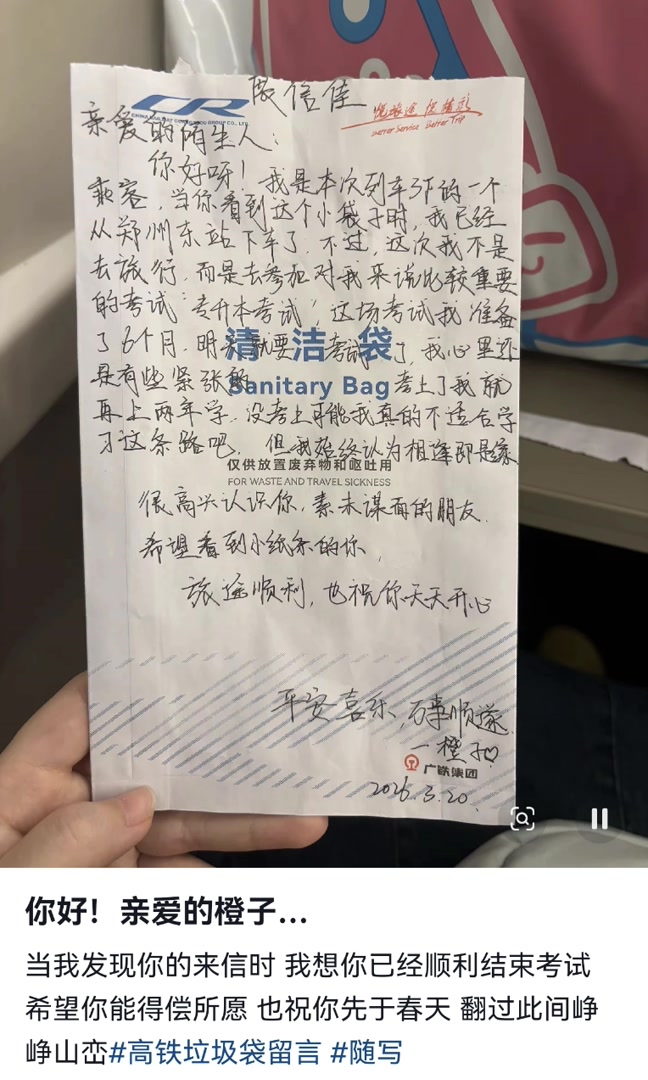 展信佳
CR
CHINA RAILWAY GUANGZHOU GROUP CO., LTD.
悦旅途 促精彩
Better Service Better Trip
亲爱的陌生人：
你好呀！我是本次列车3F的一个
乘客，当你看到这个小袋子时，我已经
从郑州东站下车了，不过，这次我不是
去旅行，而是去参加对我来说比较重要
的考试“专升本考试”，这场考试我准备
了6个月，明天就要考试了，我心里还
清洁袋
是有些紧张的 考上了我就
Sanitary Bag
再上两年学，没考上可能我真的不适合学
习这条路吧。但我始终认为相逢即是缘
仅供放置废弃物和呕吐用
FOR WASTE AND TRAVEL SICKNESS
很高兴认识你，素未谋面的朋友.
希望看到小纸条的你，
旅途顺利，也祝你天天开心
平安喜乐，万事顺遂
一橙子♡
广铁集团
2026.3.20.
你好！亲爱的橙子...
当我发现你的来信时 我想你已经顺利结束考试
希望你能得偿所愿 也祝你先于春天 翻过此间峥
峥山峦#高铁垃圾袋留言 #随写